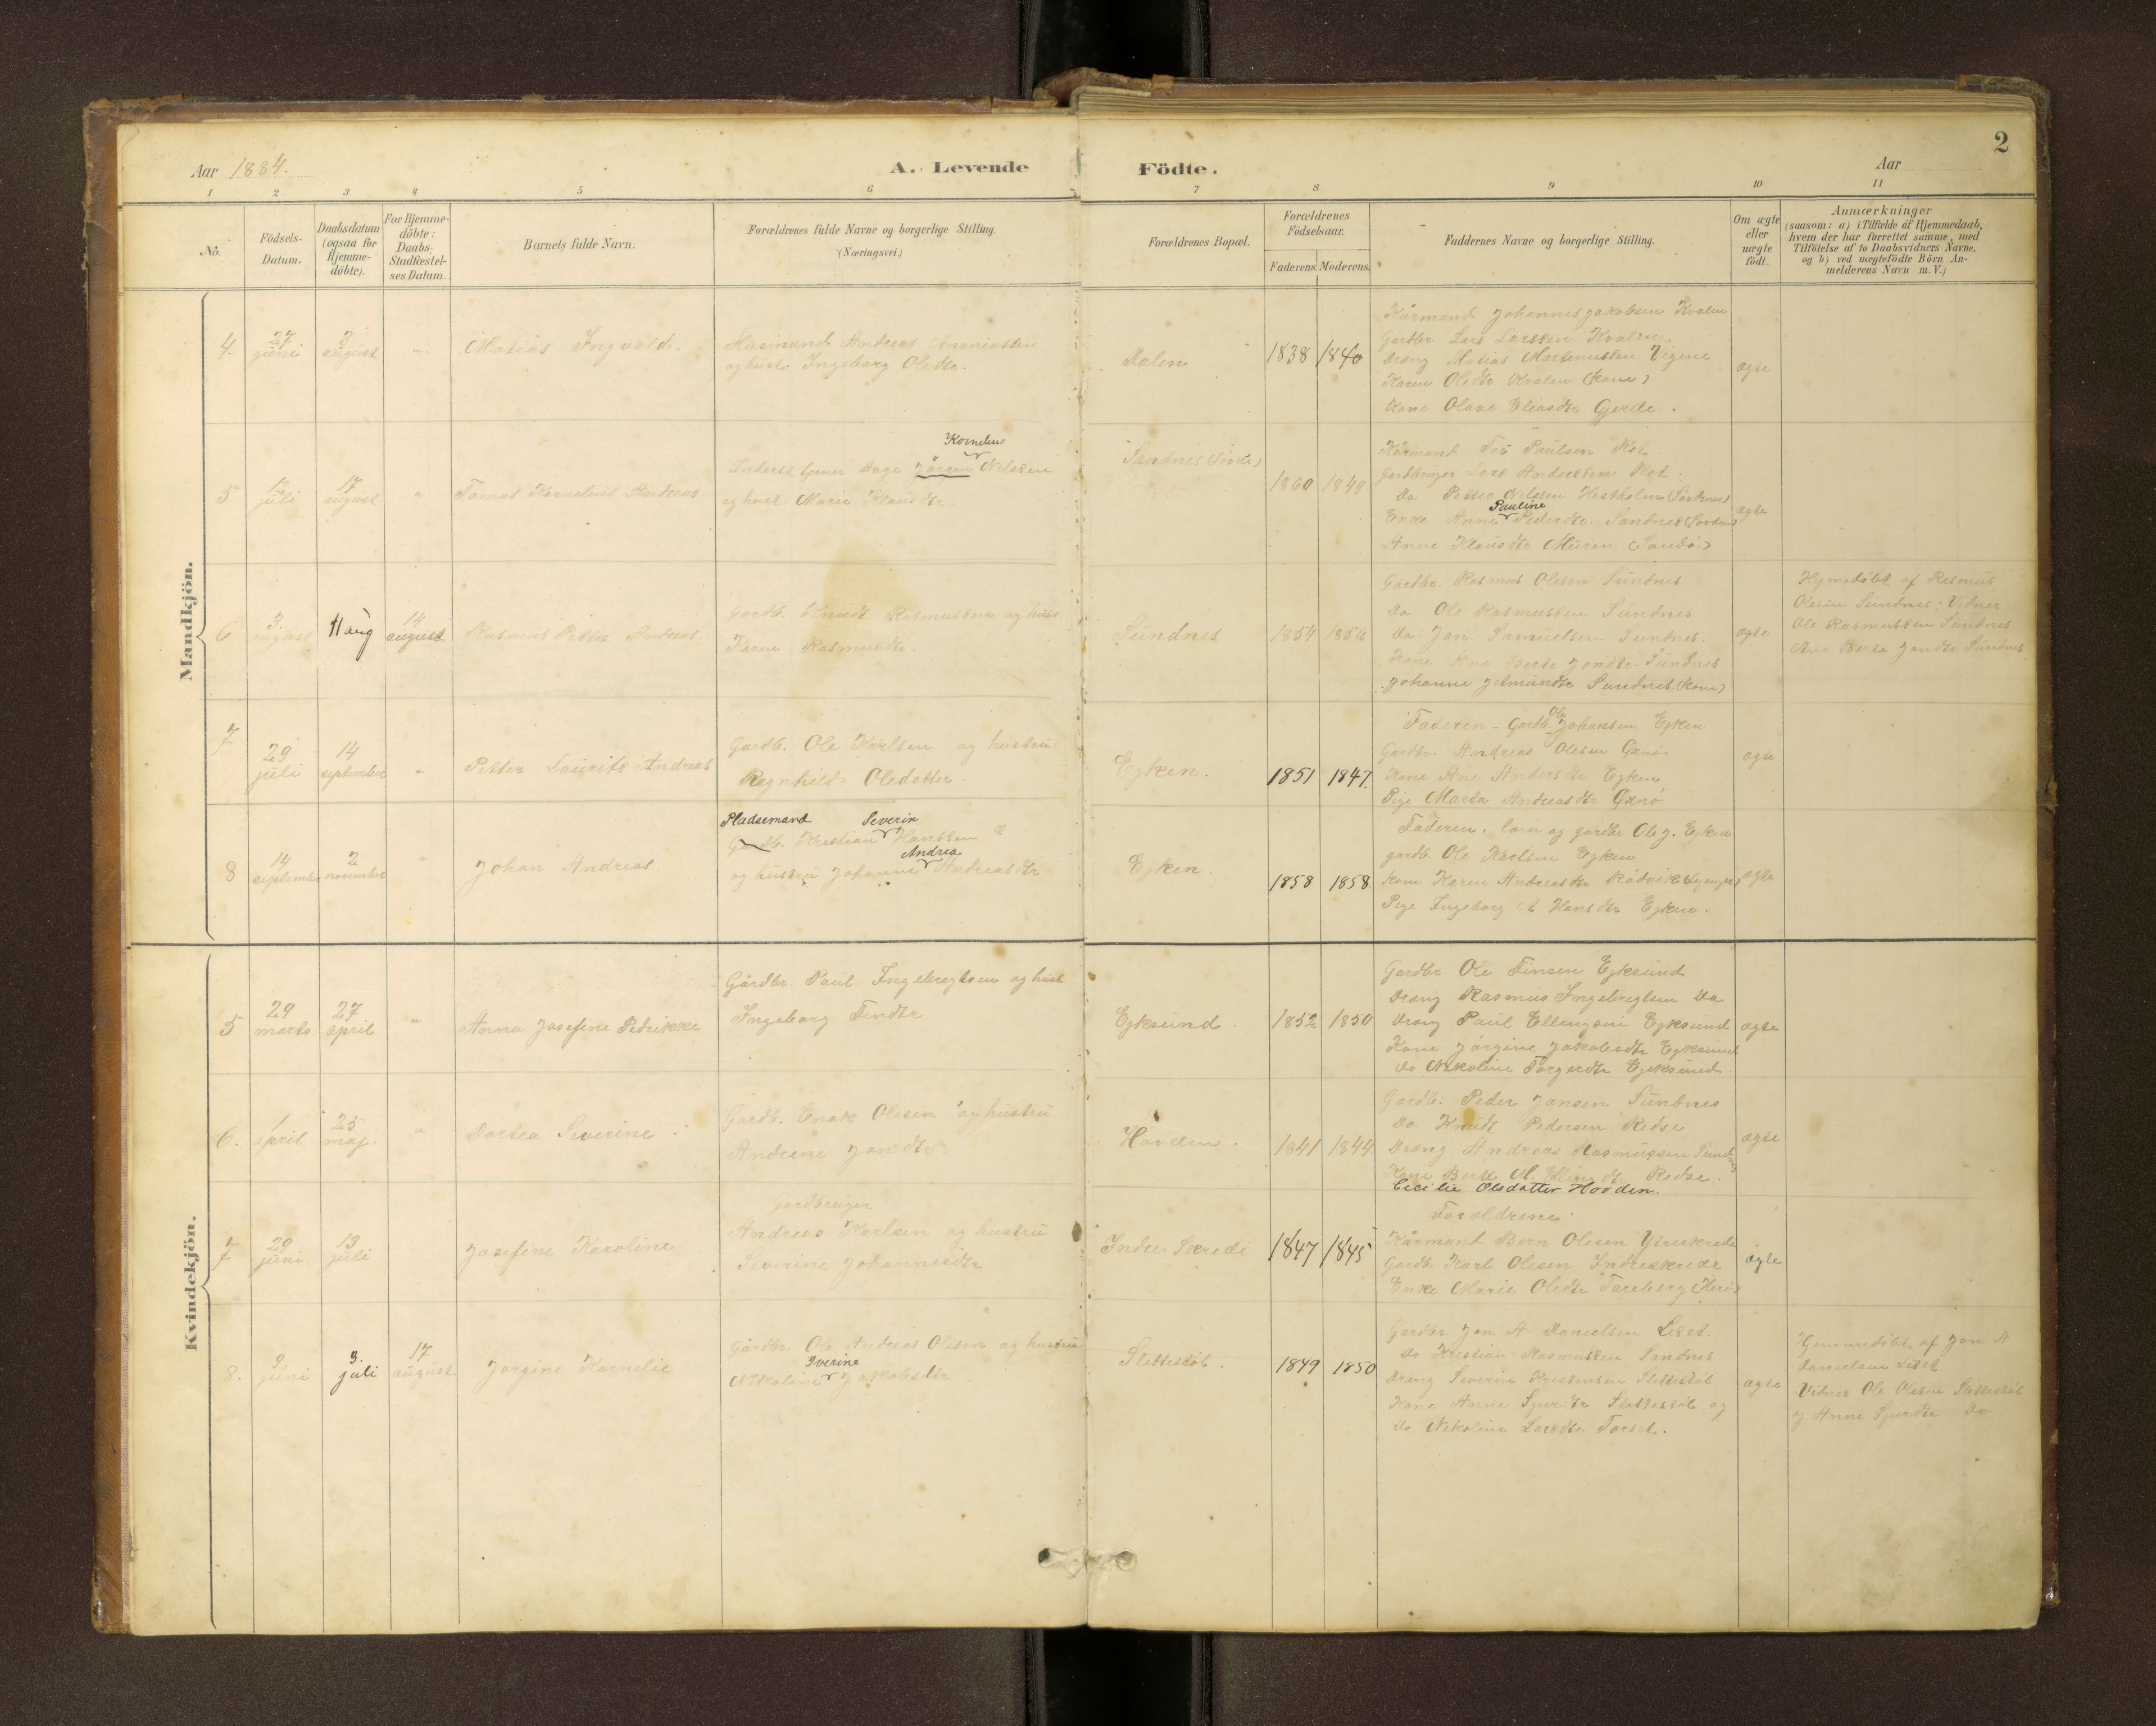 2
Aar 1884.
A. Levende Födte.
Aar
1 2 3 4 5 6 7 8 9 10 11
No.
Födsels-
Datum.
Daabsdatum
(ogsaa for
Hjemme-
döbte).
For Hjemme-
döbte:
Daabs-
Stadfæstel-
ses Datum.
Barnets fulde Navn.
Forældrenes fulde Navne og borgerlige Stilling.
(Næringsvei.)
Forældrenes Bopæl.
Forældrenes
Födselsaar.
Faderens. Moderens.
Faddernes Navne og borgerlige Stilling.
Om ægte
eller
uægte
födt.
Anmærkninger
(saasom: a) i Tilfælde af Hjemmedaab,
hvem der har forrettet samme, med
Tilföielse af to Daabsvidners Navne,
og b) ved uægtefödte Börn An-
melderens Navn m. V.)
Mandkjön.
4.
27
juni
3
august
"
Matias Ingvald.
Husmand Andreas Ananiassen
og hust. Ingeborg Oledtr.
Dalen
1838 1840
Kårmand Johannes Jakobsen Kvalen
Gardbr. Lars Larssen Kvalen
Dræng Matias Martinussen Vigene
Karen Oledtr Kvalen (kone)
Kone Olave Eliasdtr Gjerde.
ægte
5
12
juli
17
august
"
Tomas Kornelius Andreas
Kornelius
Inderst Aage Jörgen Nilssen
og hust. Marie Klausdtr.
Sandnes (Sövde)
1860 1848
Kårmand Paulsen
Gardbruger Lars Anderssen
Do Petter Nilssen Hestholm (Sövdenes)
Pauline
Enke Anne Pedersdtr. Sandnes (Sövden)
Anne Klausdtr Muren (Sandö)
ægte
6
3
august
11 aug
14
august
Rasmus Peder Andreas
Gardb. Knudt Rasmussen og hust.
Karen Rasmusdtr.
Sundnes
1854 1856
Gardbr. Rasmus Olesen Sundnes
Do Ole Rasmussen Sundnes
Do Jon Samuelsen Sundnes.
Kone Ane Berte Jondtr. Sundnes
Johanne Sundnes (kone)
ægte
Hjemedöbt af Rasmus
Olesen Sundnes; Vidner
Ole Rasmussen Sundnes
Ane Berte Jondtr Sundnes
7
29
juli
14
september
"
Petter Laurits Andreas
Gardb. Ole Karlsen og hustru
Ragnhild Oledatter.
Ejken.
1851 1847.
Ole
Faderen - Gardb. Johansen Ejken
Gardbr. Andreas Olesen
Kone Ane Andersdtr Ejken
Pige Marta Andreasdtr
ægte
8
14
september
2
november
"
Johan Andreas
Pladsemand Severin
Gardb. Kristian Hanssen
Andrea
og hustru Johanne Andreasdtr
Ejken.
1858 1858
Faderen, og gardbr Ole J. Ejken
gardb. Ole Karlsen Ejken
kone Karen Andreasdtr Rödvik
Pige Ingeborg A Hansdtr. Ejken.
ægte
Kvindekjön.
5
29
marts
27
april
"
Anna Josefine Pedrikke
Gårdbr. Paul Ingebregtsen og hust
Ingeborg Findtr
Ejksund.
1852 1850
Gardbr Ole Finsen Ejksund
Dræng Rasmus Ingebregtsen Do
Dræng Paul Ellingsen Ejksund
Kone Jörgine Jakobsdtr Ejksund
Do Nikoline Torgerdtr Ejksund
ægte
6.
1
april
25
maj.
"
Dortea Severine.
Gardb. Enok Olesen og hustru
Andrine Jondtr.
Hovden.
1841 1844.
Gardb. Peder Jansen Sundnes
Do Knudt Pedersen Redse
Dræng Andreas Rasmussen Sundnes
Kone Berte M. Redse.
Cecilie Olsdatter Hovden.
ægte
7
29
juni
13
juli
Josefine Karoline
gardbruger
Andreas Karlsen og hustru
Severine Johannesdtr
Indre Skrede
1847 1845
Forældrene
Kårmand Bern Olesen Ytreskrede
Gardb. Karl Olesen Indreskrede
Enke Marie Oledtr Torseberg (Herö)
ægte
8.
9
juni
3.
juli
17
august
Jörgine Kornelie
Gårdbr. Ole Andreas Olesen og hustru
Iverine
Nikoline Jakobsdtr
Slettestöl.
1849 1850
Gardbr. Jon A. Danielsen Liset
Do Kristian Rasmussen Sandnes
Dræng Severin Kristensen Slettestöl
Kone Anne Sjurdtr Slettestöl og
Do Nikoline Larsdtr Torset.
ægte
Hjemmedöbt af Jon A
Danielsen Liset
Vidner Ole Olesen Slettestöl
og Anne Sjurdtr Do